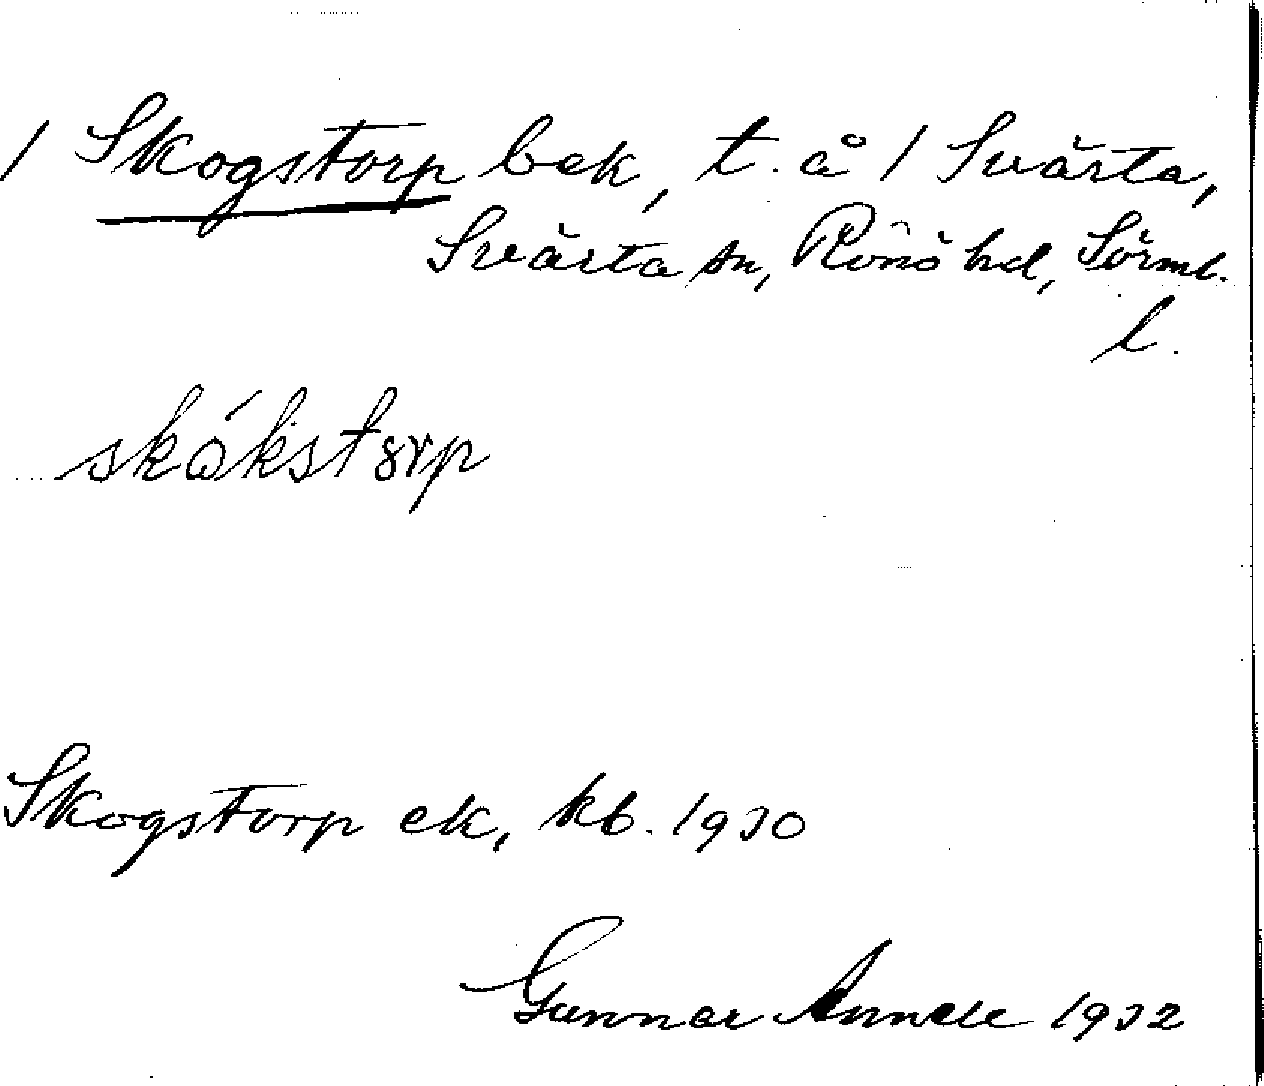 / Skogstorp bek, t. å / Svärta,
Svärta sn, Rönö hd, Sörml.
l.
skók̇storp
Skogstorp ek, kb. 1930
Gunnar 1932